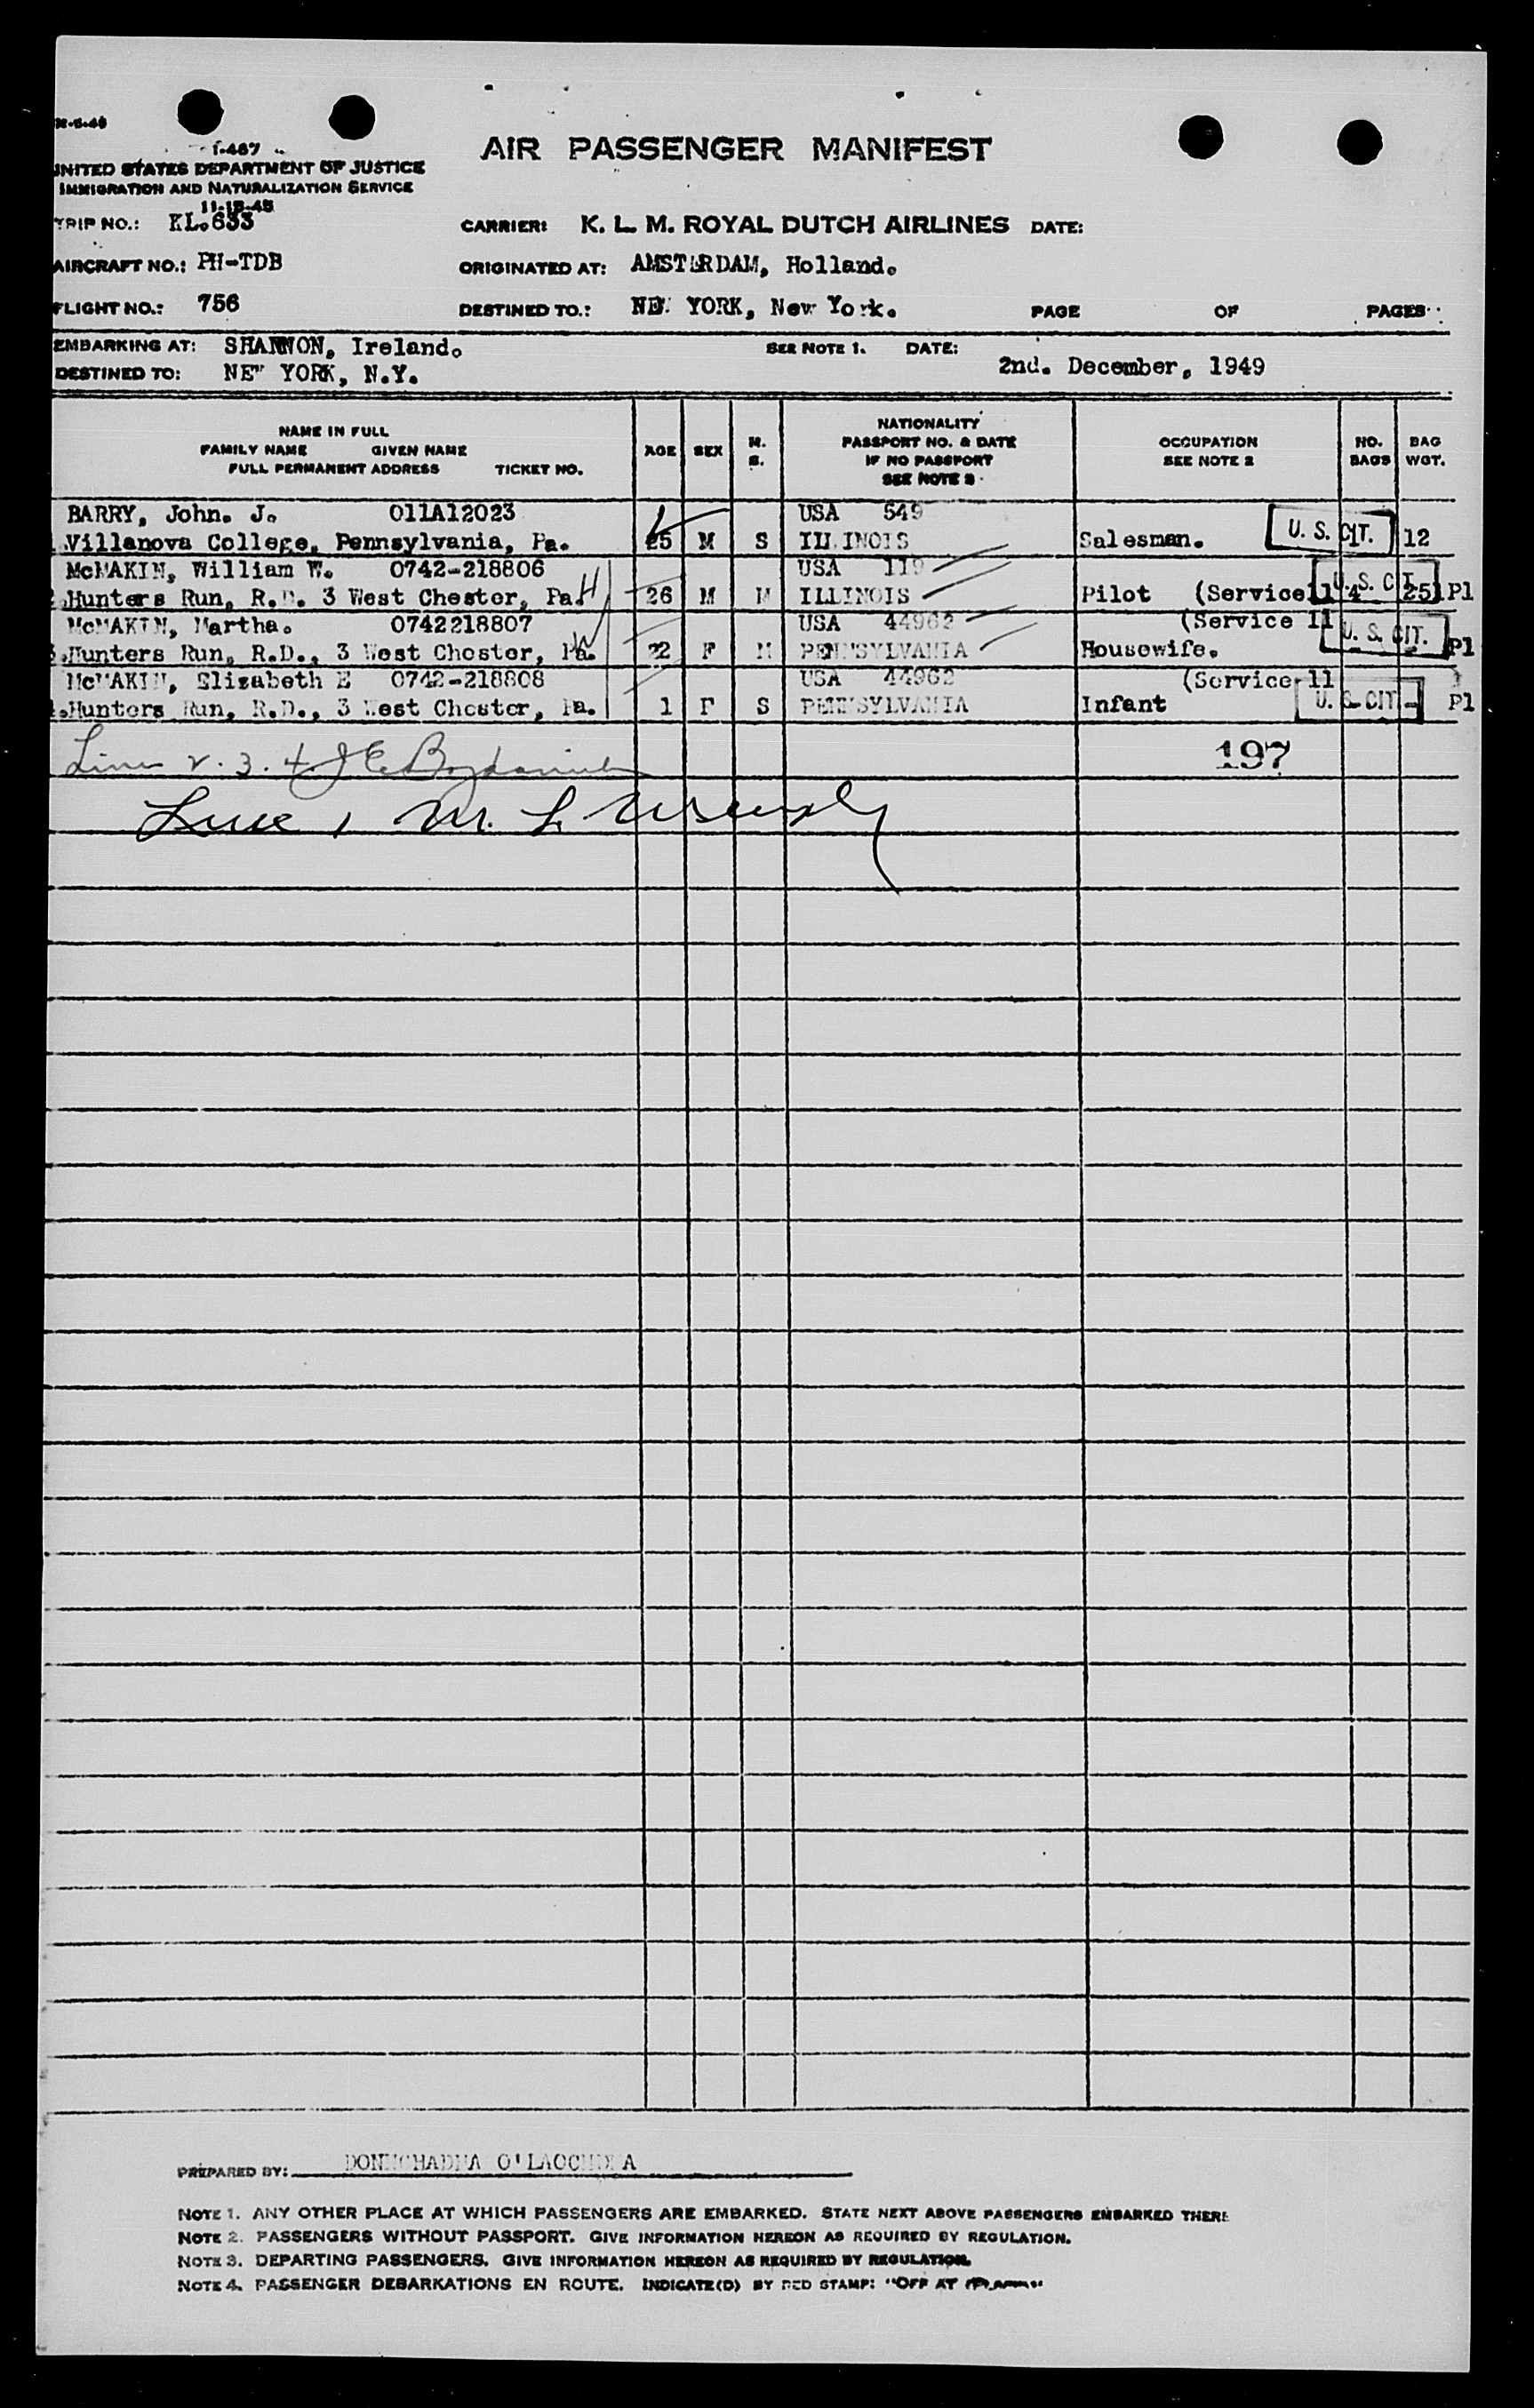 I-467
UNITED STATES DEPARTMENT OF JUSTICE
IMMIGRATION AND NATURALIZATION SERVICE
11-15-45
AIR PASSENGER MANIFEST
TRIP NO.: KL.633 CARRIER: K. L. M. ROYAL DUTCH AIRLINES DATE:
AIRCRAFT NO.: PH-TDB ORIGINATED AT: AMSTERDAM, Holland.
FLIGHT NO.: 756 DESTINED TO.: NEW YORK, New York. PAGE OF PAGES
EMBARKING AT: SHANNON, Ireland. SEE NOTE 1. DATE: 2nd. December, 1949
DESTINED TO: NEW YORK, N.Y.
NAME IN FULL
FAMILY NAME GIVEN NAME
FULL PERMANENT ADDRESS TICKET NO.
AGE SEX M. S.
NATIONALITY
PASSPORT NO. & DATE
IF NO PASSPORT
SEE NOTE 3
OCCUPATION
SEE NOTE 2
NO. BAGS
BAG WGT.
BARRY, John. J. 011A12023 USA 549
Villanova College, Pennsylvania, Pa. 25 M S ILLINOIS Salesman. U. S. CIT. 12
McMAKIN, William W. 0742-218806 USA 119
Hunters Run, R.D. 3 West Chester, Pa. 26 M M ILLINOIS Pilot (Service 11 4 U. S. CIT. 251 Pl
McMAKIN, Martha. 0742218807 USA 44962 (Service 11
Hunters Run, R.D., 3 West Chester, Pa. 22 F M PENNSYLVANIA Housewife. U. S. CIT. Pl
McMAKIN, Elisabeth E 0742-218808 USA 44962 (Service 11
Hunters Run, R.D., 3 West Chester, Pa. 1 F S PENNSYLVANIA Infant U. S. CIT. Pl
Lines 2. 3. 4. 197
Line 1 M. L.
PREPARED BY:
NOTE 1. ANY OTHER PLACE AT WHICH PASSENGERS ARE EMBARKED. STATE NEXT ABOVE PASSENGERS EMBARKED THERE
NOTE 2. PASSENGERS WITHOUT PASSPORT. GIVE INFORMATION HEREON AS REQUIRED BY REGULATION.
NOTE 3. DEPARTING PASSENGERS. GIVE INFORMATION HEREON AS REQUIRED BY REGULATION.
NOTE 4. PASSENGER DEBARKATIONS EN ROUTE. INDICATE(D) BY RED STAMP: "OFF AT